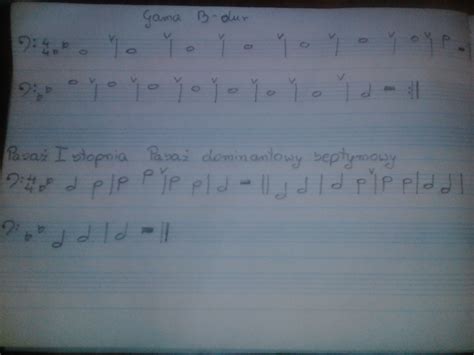 Gama B-dur
4 4
Pasaż I stopnia Pasaż dominantowy septymowy
4 4